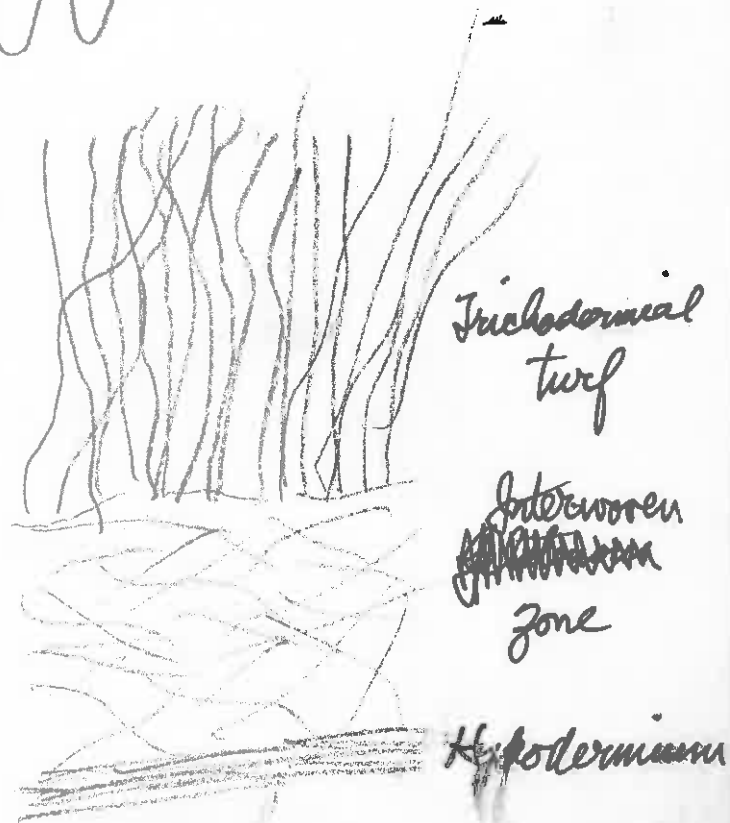 Trichodermial
turf
Interwoven
Zone
Hypodermium